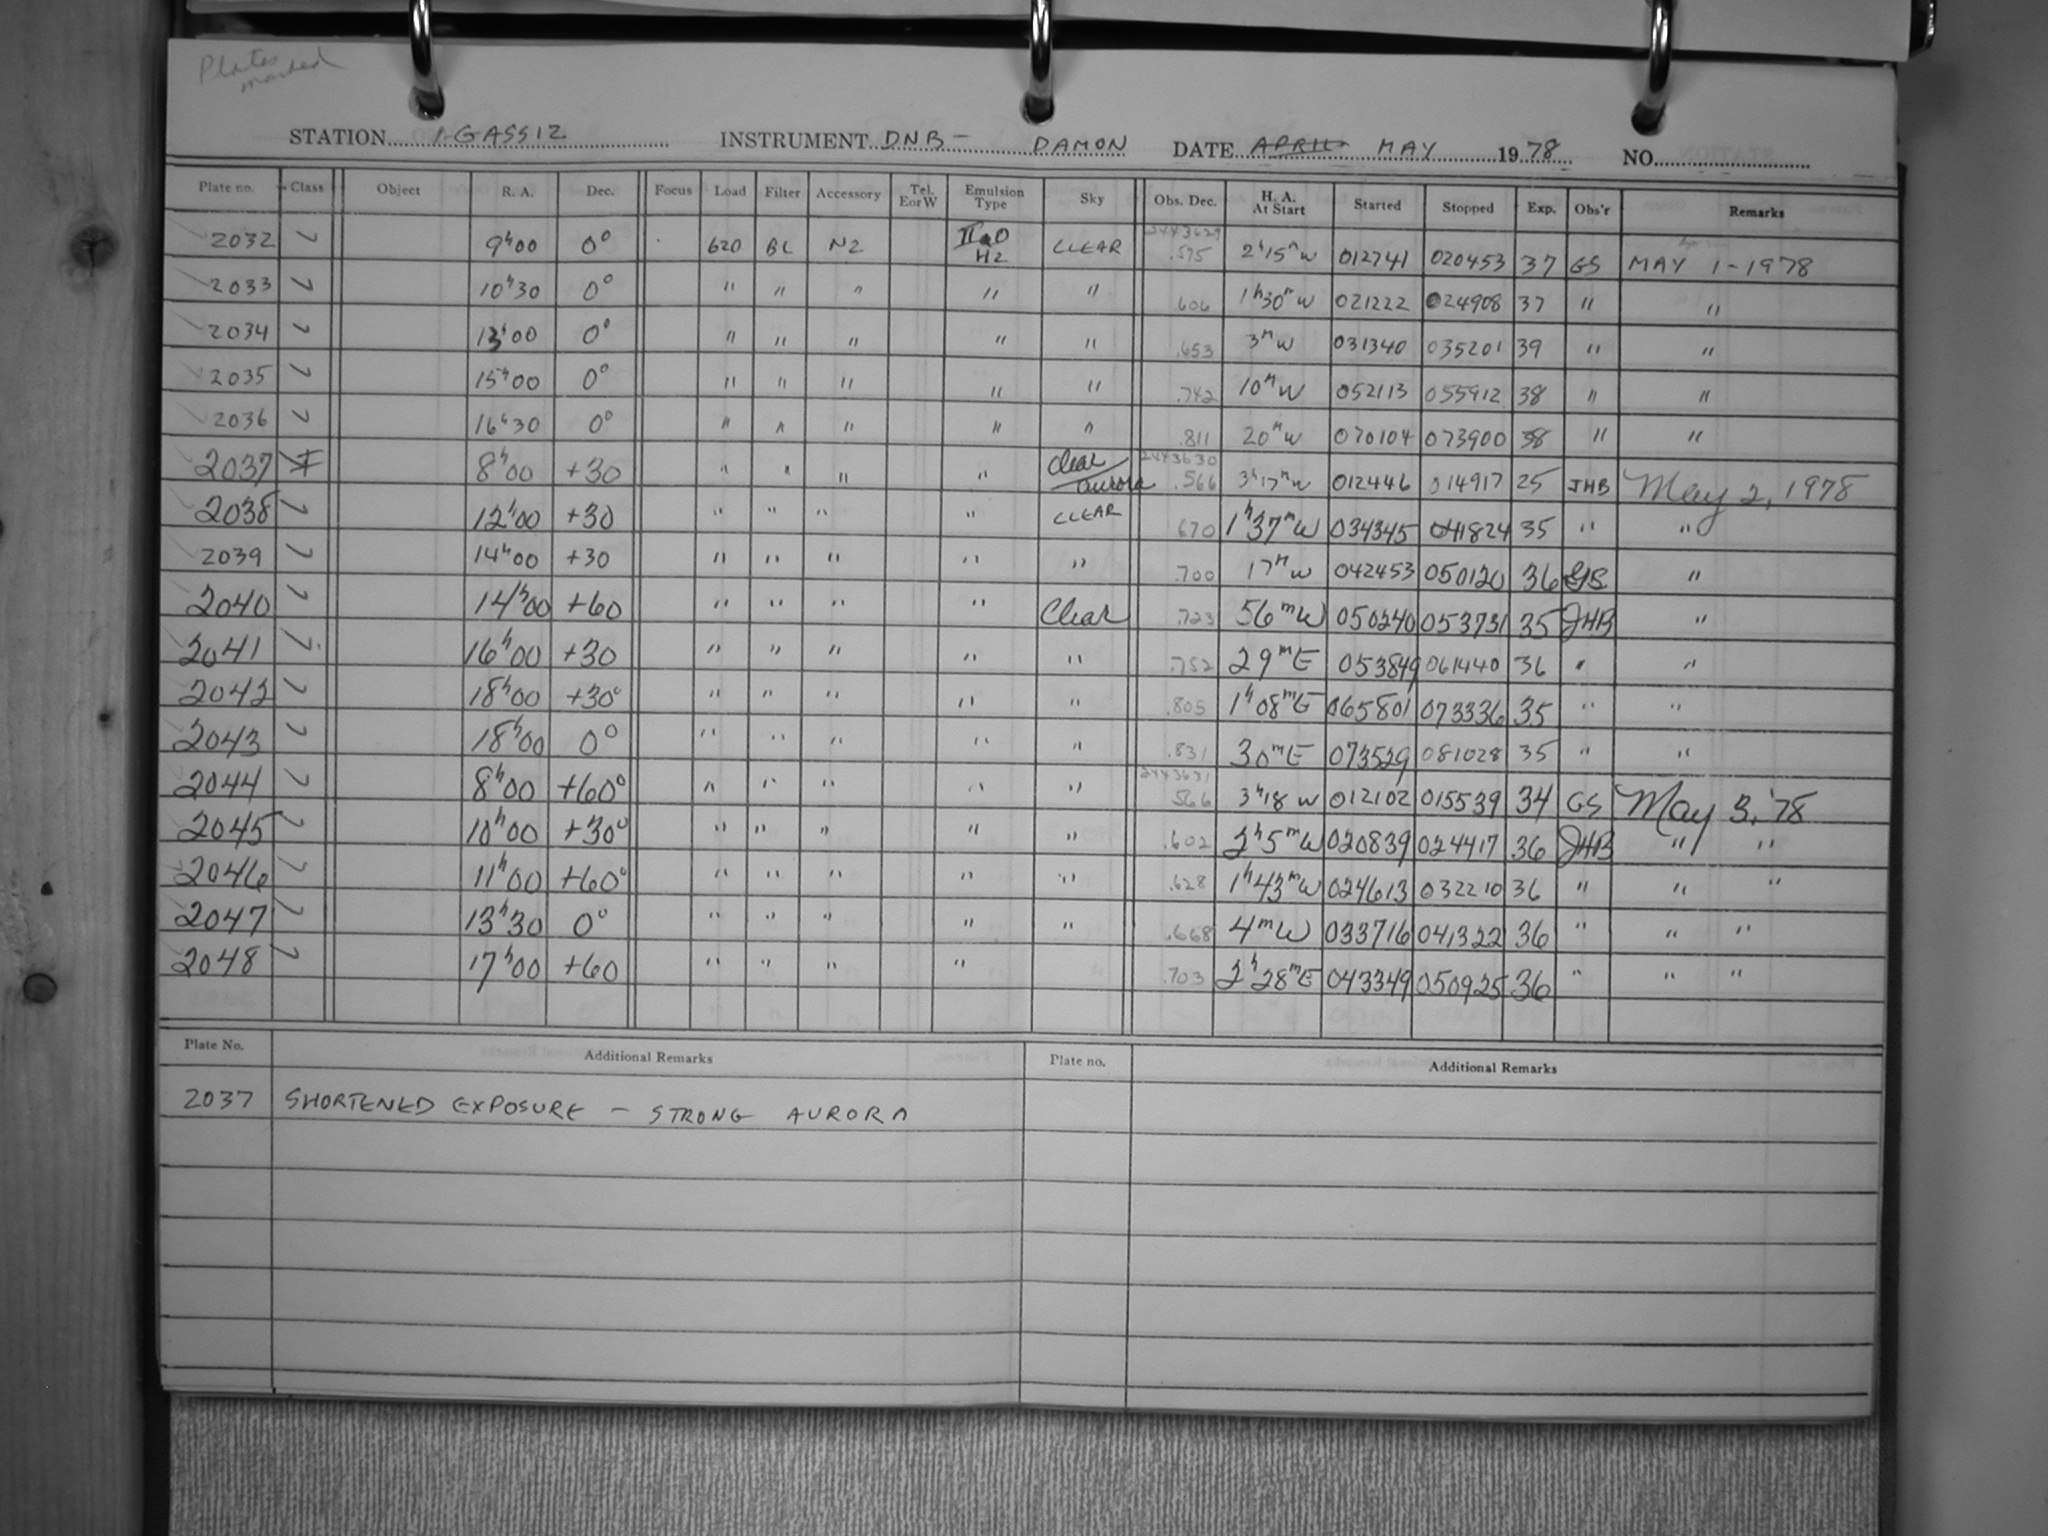 Plates
marked
STATION AGASSIZ INSTRUMENT DNB - DAMON DATE APRIL MAY 1978 NO.
Plate no. Class Object R. A. Dec. Focus Load Filter Accessory Tel. E or W Emulsion Type Sky Obs. Dec. H. A. At Start Started Stopped Exp. Obs'r Remarks
2032 ✓ 9ʰ00 0° 620 BL N2 IIaO H2 CLEAR 2443629 .575 2ʰ15ᵐW 012741 020453 37 GS MAY 1-1978
2033 ✓ 10ʰ30 0° " " " " " .606 1ʰ30ᵐW 021222 024908 37 " "
2034 ✓ 13ʰ00 0° " " " " " .653 3ᵐW 031340 035201 39 " "
2035 ✓ 15ʰ00 0° " " " " " .742 10ᵐW 052113 055912 38 " "
2036 ✓ 16ʰ30 0° " " " " " .811 20ᵐW 070104 073900 38 " "
2037 8ʰ00 +30 " " " " Clear/aurora 2443630 .566 3ʰ17ᵐW 012446 014917 25 JHB May 2, 1978
2038 ✓ 12ʰ00 +30 " " " " CLEAR .670 1ʰ37ᵐW 034345 041824 35 " "
2039 ✓ 14ʰ00 +30 " " " " " .700 17ᵐW 042453 050120 36 GS "
2040 ✓ 14ʰ00 +60 " " " " Clear .723 56ᵐW 050240 053731 35 JHB "
2041 ✓ 16ʰ00 +30 " " " " " .752 29ᵐE 053849 061440 36 " "
2042 ✓ 18ʰ00 +30° " " " " " .805 1ʰ08ᵐE 065801 073336 35 " "
2043 ✓ 18ʰ00 0° " " " " " .831 30ᵐE 073529 081028 35 " "
2044 ✓ 8ʰ00 +60° " " " " " 2443631 .566 3ʰ18W 012102 015539 34 GS May 3, '78
2045 ✓ 10ʰ00 +30° " " " " " .602 2ʰ5ᵐW 020839 024417 36 JHB " "
2046 ✓ 11ʰ00 +60° " " " " " .628 1ʰ43ᵐW 024613 032210 36 " " "
2047 ✓ 13ʰ30 0° " " " " " .668 4ᵐW 033716 041322 36 " " "
2048 ✓ 17ʰ00 +60 " " " " " .703 2ʰ28ᵐE 043349 050925 36 " " "
Plate No. Additional Remarks Plate no. Additional Remarks
2037 SHORTENED EXPOSURE - STRONG AURORA